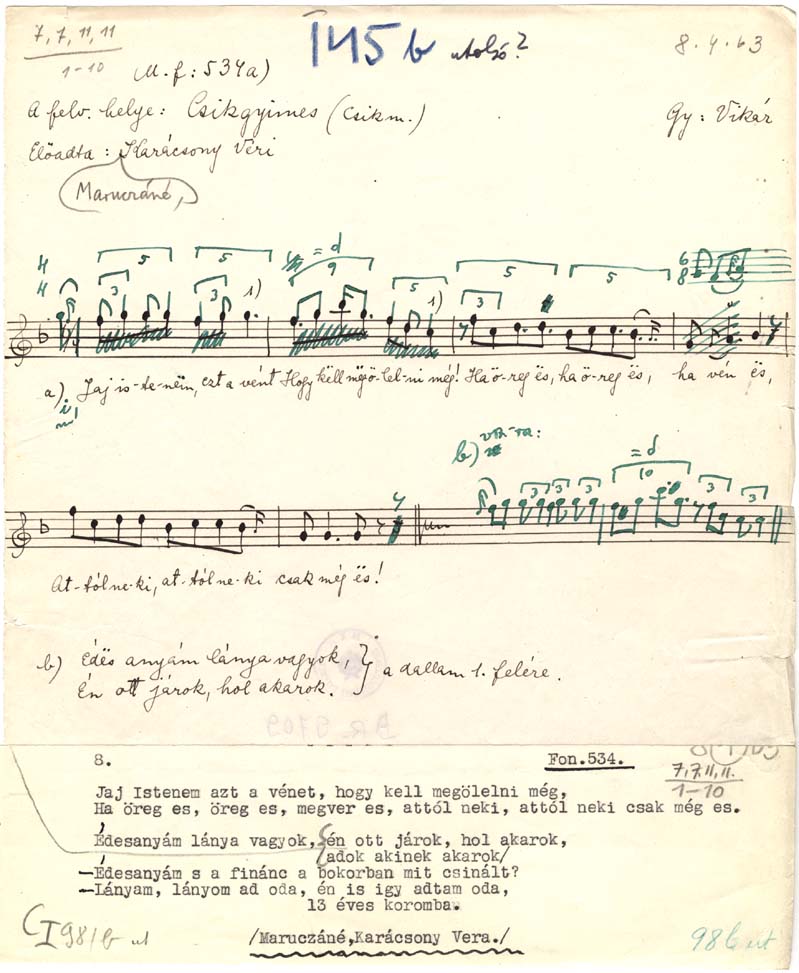 7, 7, 11, 11
1-10
I 145 b utolsó?
8.4.63
M.f.: 534a)
A felv. helye: Csikgyimes (Csikm.)
Gy: Vikár
Előadta: Karácsony Véri
Maruczáné,
4 4
5 5 = d 9 5 5 5 6 8
3 3 1) 1) 3
a) Jaj is-te-nëm, ezt a vént Hogy këll mëg-ö-lel-ni még! Ha ö-reg ës, ha ö-reg ës, ha vén ës,
b)
= d
10
3 3 3 3 3
At-tól ne-ki, at-tól ne-ki csak még ës!
b) Édës anyám lánya vagyok,
Én ott járok, hol akarok.
a dallam 1. felére.
BR 5709
8.
Fon.534.
7,7,11,11.
1-10
Jaj Istenem azt a vénet, hogy kell megölelni még,
Ha öreg es, öreg es, megver es, attól neki, attól neki csak még es.
Édesanyám lánya vagyok, én ott járok, hol akarok,
adok akinek akarok/
—Edesanyám s a fináncz a bokorban mit csinált?
—Lányam, lányom ad oda, én is igy adtam oda,
13 éves koromba.
CI 98/b ut
/Maruczáné,Karácsony Vera./
98b ut